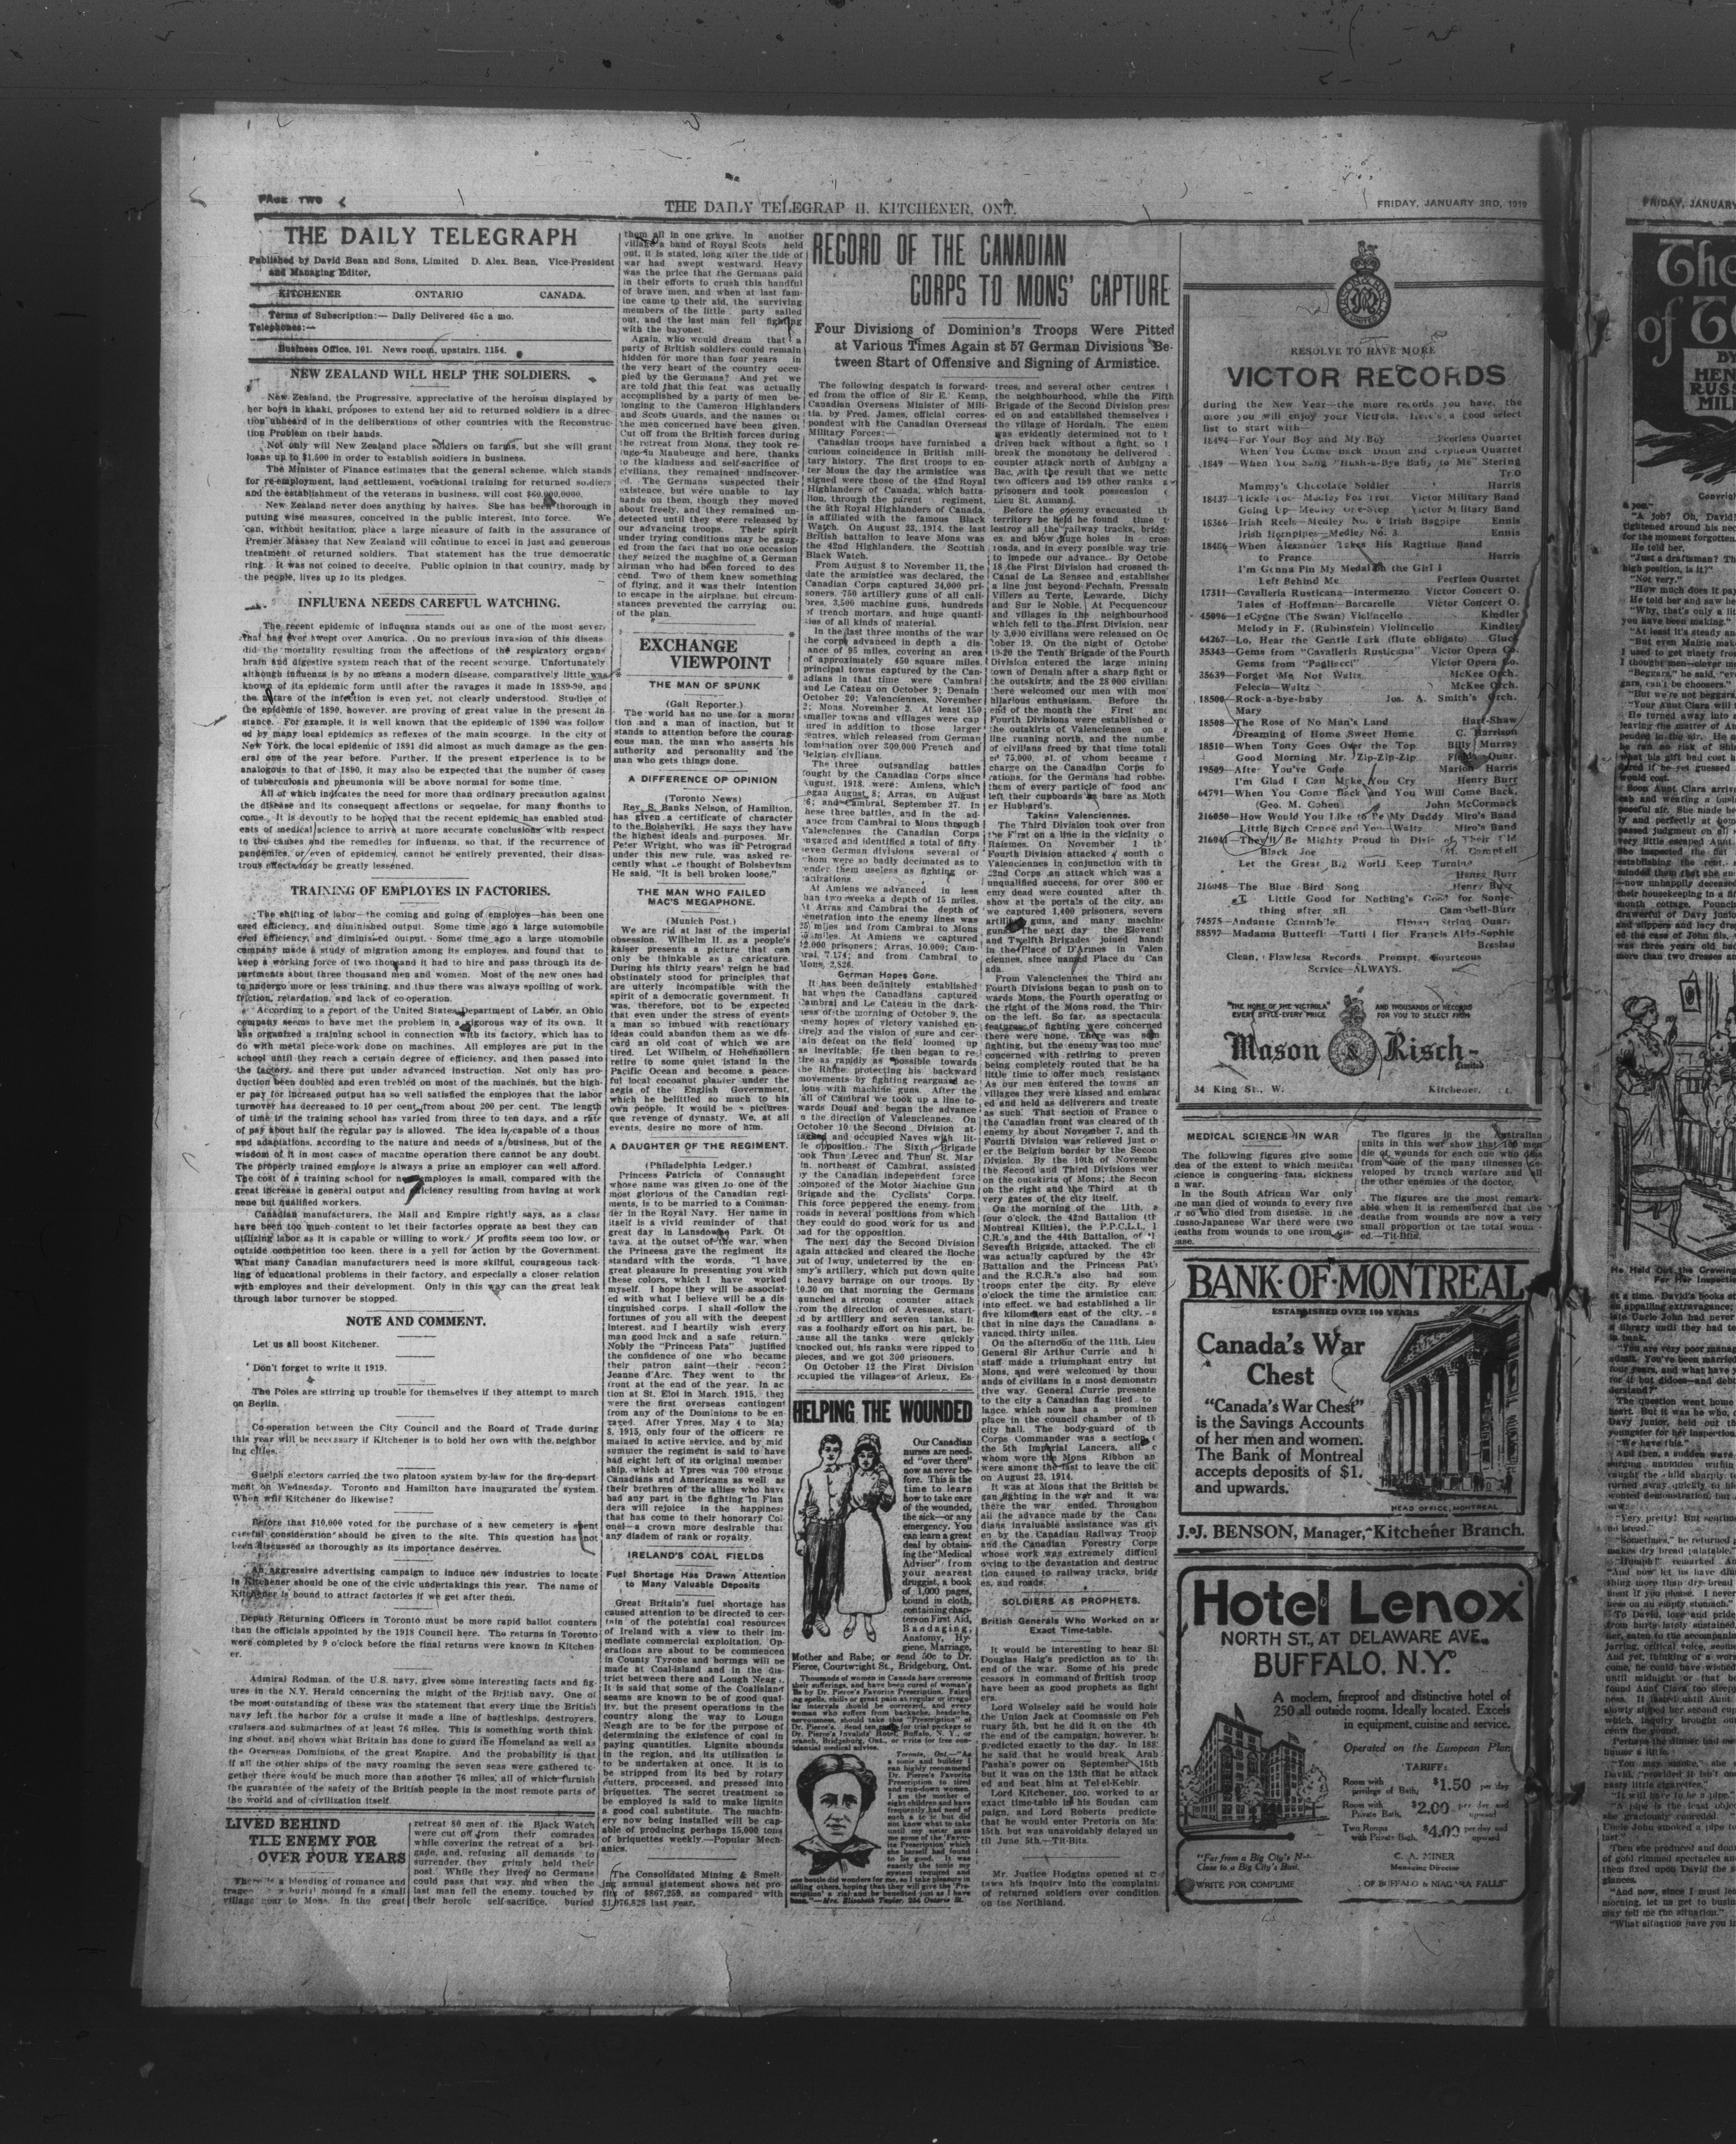 PAGE TWO
THE DAILY TELEGRAPH, KITCHENER, ONT.
FRIDAY, JANUARY 3RD, 1919
THE DAILY TELEGRAPH
Published by David Bean and Sons, Limited D. Alex. Bean, Vice-President
and Managing Editor.
KITCHENER ONTARIO CANADA.
Terms of Subscription:— Daily Delivered 45c a mo.
Telephones:—
Business Office, 101. News room, upstairs, 1154.
NEW ZEALAND WILL HELP THE SOLDIERS.
New Zealand, the Progressive, appreciative of the heroism displayed by
her boys in khaki, proposes to extend her aid to returned soldiers in a direc-
tion unheard of in the deliberations of other countries with the Reconstruc-
tion Problem on their hands.
Not only will New Zealand place soldiers on farms, but she will grant
loans up to $1,500 in order to establish soldiers in business.
The Minister of Finance estimates that the general scheme, which stands
for re-employment, land settlement, vocational training for returned soldiers
and the establishment of the veterans in business, will cost
New Zealand never does anything by halves. She has been thorough in
putting wise measures, conceived in the public interest, into force. We
can, without hesitation, place a large measure of faith in the assurance of
Premier Massey that New Zealand will continue to excel in just and generous
treatment of returned soldiers. That statement has the true democratic
ring. It was not coined to deceive. Public opinion in that country, made by
the people, lives up to its pledges.
INFLUENA NEEDS CAREFUL WATCHING.
The recent epidemic of influenza stands out as one of the most sever
that has ever swept over America. On no previous invasion of this diseas
did the mortality resulting from the affections of the respiratory organs
brain and digestive system reach that of the recent scourge. Unfortunately
although influenza is by no means a modern disease, comparatively little was
known of its epidemic form until after the ravages it made in 1889-90, and
the nature of the infection is even yet, not clearly understood. Studies of
the epidemic of 1890, however, are proving of great value in the present in
stance. For example, it is well known that the epidemic of 1890 was follow
ed by many local epidemics as reflexes of the main scourge. In the city of
New York, the local epidemic of 1891 did almost as much damage as the gen-
eral one of the year before. Further, if the present experience is to be
analogous to that of 1890, it may also be expected that the number of cases
of tuberculosis and pneumonia will be above normal for some time.
All of which indicates the need for more than ordinary precaution against
the disease and its consequent affections or sequelae, for many months to
come. It is devoutly to be hoped that the recent epidemic has enabled stud-
ents of medical science to arrive at more accurate conclusions with respect
to the causes and the remedies for influenza, so that, if the recurrence of
pandemics, or even of epidemics, cannot be entirely prevented, their disas-
trous effects may be greatly lessened.
TRAINING OF EMPLOYES IN FACTORIES.
The shifting of labor—the coming and going of employes—has been one
ered efficiency, and diminished output. Some time ago a large automobile
ered efficiency, and diminished output. Some time ago a large automobile
company made a study of migration among its employes, and found that to
keep a working force of two thousand it had to hire and pass through its de-
partments about three thousand men and women. Most of the new ones had
to undergo more or less training, and thus there was always spoiling of work,
friction, retardation, and lack of co-operation.
According to a report of the United States Department of Labor, an Ohio
company seems to have met the problem in a vigorous way of its own. It
has organized a training school in connection with its factory, which has to
do with metal piece-work done on machines. All employes are put in the
school until they reach a certain degree of efficiency, and then passed into
the factory, and there put under advanced instruction. Not only has pro-
duction been doubled and even trebled on most of the machines, but the high-
er pay for increased output has so well satisfied the employes that the labor
turnover has decreased to 10 per cent from about 200 per cent. The length
of time in the training school has varied from three to ten days, and a rate
of pay about half the regular pay is allowed. The idea is capable of a thous
and adaptations, according to the nature and needs of a business, but of the
wisdom of it in most cases of machine operation there cannot be any doubt.
The properly trained employe is always a prize an employer can well afford.
The cost of a training school for new employes is small, compared with the
great increase in general output and efficiency resulting from having at work
none but qualified workers.
Canadian manufacturers, the Mail and Empire rightly says, as a class
have been too much content to let their factories operate as best they can
utilizing labor as it is capable or willing to work. If profits seem too low, or
outside competition too keen, there is a yell for action by the Government.
What many Canadian manufacturers need is more skilful, courageous tack-
ling of educational problems in their factory, and especially a closer relation
with employes and their development. Only in this way can the great leak
through labor turnover be stopped.
NOTE AND COMMENT.
Let us all boost Kitchener.
Don't forget to write it 1919.
The Poles are stirring up trouble for themselves if they attempt to march
on Berlin.
Co-operation between the City Council and the Board of Trade during
this year will be necessary if Kitchener is to hold her own with the neighbor
ing cities.
Guelph electors carried the two platoon system by-law for the fire-depart-
ment on Wednesday. Toronto and Hamilton have inaugurated the system.
When will Kitchener do likewise?
Before that $10,000 voted for the purchase of a new cemetery is spent
careful consideration should be given to the site. This question has not
been discussed as thoroughly as its importance deserves.
An aggressive advertising campaign to induce new industries to locate
in Kitchener should be one of the civic undertakings this year. The name of
Kitchener is bound to attract factories if we get after them.
Deputy Returning Officers in Toronto must be more rapid ballot counters
than the officials appointed by the 1918 Council here. The returns in Toronto
were completed by 9 o'clock before the final returns were known in Kitchen-
er.
Admiral Rodman, of the U.S. navy, gives some interesting facts and fig-
ures in the N.Y. Herald concerning the might of the British navy. One of
the most outstanding of these was the statement that every time the British
navy left the harbor for a cruise it made a line of battleships, destroyers,
cruisers and submarines of at least 76 miles. This is something worth think
ing about, and shows what Britain has done to guard the Homeland as well as
the Overseas Dominions of the great Empire. And the probability is that
if all the other ships of the navy roaming the seven seas were gathered to-
gether there would be much more than another 76 miles, all of which furnish
the guarantee of the safety of the British people in the most remote parts of
the world and of civilization itself.
LIVED BEHIND
THE ENEMY FOR
OVER FOUR YEARS
There is a blending of romance and
in a burial mound in a small
village near to Mons. In the great
retreat 80 men of the Black Watch
were cut off from their comrades
while covering the retreat of a bri-
gade, and, refusing all demands to
surrender, they grimly held their
post. While they lived no Germans
could pass that way, and when the
last man fell the enemy, touched by
their heroic self-sacrifice, buried
them all in one grave. In another
village a band of Royal Scots held
out, it is stated, long after the tide of
war had swept westward. Heavy
was the price that the Germans paid
in their efforts to crush this handful
of brave men, and when at last fam-
ine came to their aid, the surviving
members of the little party sallied
out, and the last man fell fighting
with the bayonet.
Again, who would dream that a
party of British soldiers could remain
hidden for more than four years in
the very heart of the country occu-
pied by the Germans? And yet we
are told that this feat was actually
accomplished by a party of men be-
longing to the Cameron Highlanders
and Scots Guards, and the names of
the men concerned have been given.
Cut off from the British forces during
the retreat from Mons, they took re-
fuge in Maubeuge and here, thanks
to the kindness and self-sacrifice of
civilians, they remained undiscover-
ed. The Germans suspected their
existence, but were unable to lay
hands on them, though they moved
about freely, and they remained un-
detected until they were released by
our advancing troops. Their spirit
under trying conditions may be gaug-
ed from the fact that no one occasion
they seized the machine of a German
airman who had been forced to des-
cend. Two of them knew something
of flying, and it was their intention
to escape in the airplane, but circum-
stances prevented the carrying out
of the plan.
EXCHANGE
VIEWPOINT
THE MAN OF SPUNK
(Galt Reporter.)
The world has no use for a moral
tion and a man of inaction, but it
stands to attention before the courag-
eous man, the man who asserts his
authority and personality and the
man who gets things done.
A DIFFERENCE OF OPINION
(Toronto News)
Rev. S. Banks Nelson, of Hamilton,
has given a certificate of character
to the Bolsheviki. He says they have
the highest ideals and purposes. Mr.
Peter Wright, who was in Petrograd
under this new rule, was asked re-
cently what he thought of Bolshevism
He said, "It is bell broken loose."
THE MAN WHO FAILED
MAC'S MEGAPHONE.
(Munich Post.)
We are rid at last of the imperial
obsession. Wilhelm II. as a people's
kaiser presents a picture that can
only be thinkable as a caricature.
During his thirty years' reign he had
obstinately stood for principles that
are utterly incompatible with the
spirit of a democratic government. It
was, therefore, not to be expected
that even under the stress of events
a man so imbued with reactionary
ideas could abandon them as we dis-
card an old coat of which we are
tired. Let Wilhelm of Hohenzollern
retire to some quiet island in the
Pacific Ocean and become a peace-
ful local cocoanut planter under the
aegis of the English Government,
which he belittled so much to his
own people. It would be a pictures-
que revenge of dynasty. We, at all
events, desire no more of him.
A DAUGHTER OF THE REGIMENT.
(Philadelphia Ledger.)
Princess Patricia of Connaught
whose name was given to one of the
most glorious of the Canadian regi-
ments, is to be married to a Comman-
der in the Royal Navy. Her name in
itself is a vivid reminder of that
great day in Lansdowne Park, Ot
tawa, at the outset of the war, when
the Princess gave the regiment its
standard with the words, "I have
great pleasure in presenting you with
these colors, which I have worked
myself. I hope they will be associat-
ed with what I believe will be a dis
tinguished corps. I shall follow the
fortunes of you all with the deepest
interest, and I heartily wish every
man good luck and a safe return."
Nobly the "Princess Pats" justified
the confidence of one who became
their patron saint—their second
Jeanne d'Arc. They went to the
front at the end of the year. In ac
tion at St. Eloi in March, 1915, they
were the first overseas contingent
from any of the Dominions to be en
gaged. After Ypres, May 4 to May
8, 1915, only four of the officers re
mained in active service, and by mid
summer the regiment is said to have
had eight left of its original member
ship, which at Ypres was 700 strong
Canadians and Americans as well as
their brethren of the allies who have
had any part in the fighting in Flan
ders will rejoice in the happiness
that has come to their honorary Col
onel—a crown more desirable that
any diadem of rank or royalty.
IRELAND'S COAL FIELDS
Fuel Shortage Has Drawn Attention
to Many Valuable Deposits
Great Britain's fuel shortage has
caused attention to be directed to cer-
tain of the potential coal resources
of Ireland with a view to their im-
mediate commercial exploitation. Op-
erations are about to be commenced
in County Tyrone and borings will be
made at Coal-island and in the dis-
trict between there and Lough Neagh.
It is said that some of the Coalisland
seams are known to be of good qual-
ity, but the present operations in the
country along the way to Lough
Neagh are to be for the purpose of
determining the existence of coal in
paying quantities. Lignite abounds
in the region, and its utilization is
to be undertaken at once. It is to
be stripped from its bed by rotary
cutters, processed, and pressed into
briquettes. The secret treatment to
be employed is said to make lignite
a good coal substitute. The machin-
ery now being installed will be cap-
able of producing perhaps 15,000 tons
of briquettes weekly.—Popular Mech-
anics.
The Consolidated Mining & Smelt-
ing annual statement shows net pro-
fits of $867,259, as compared with
$1,076,828 last year.
RECORD OF THE CANADIAN
CORPS TO MONS' CAPTURE
Four Divisions of Dominion's Troops Were Pitted
at Various Times Again st 57 German Divisions Be-
tween Start of Offensive and Signing of Armistice.
The following despatch is forward-
ed from the office of Sir E. Kemp,
Canadian Overseas Minister of Mili-
tia, by Fred. James, official corres-
pondent with the Canadian Overseas
Military Forces:—
Canadian troops have furnished a
curious coincidence in British mili-
tary history. The first troops to en-
ter Mons the day the armistice was
signed were those of the 42nd Royal
Highlanders of Canada, which batta-
lion, through the parent regiment,
the 5th Royal Highlanders of Canada,
is affiliated with the famous Black
Watch. On August 23, 1914, the last
British battalion to leave Mons was
the 42nd Highlanders, the Scottish
Black Watch.
From August 8 to November 11, the
date the armistice was declared, the
Canadian Corps captured 34,000 pri-
soners, 750 artillery guns of all cali-
bres, 3,500 machine guns, hundreds
of trench mortars, and huge quanti-
ties of all kinds of material.
In the last three months of the war
the corps advanced in depth a dis-
ance of 95 miles, covering an area
of approximately 450 square miles.
principal towns captured by the Can-
adians in that time were Cambrai
and Le Cateau on October 9; Denain
October 20; Valenciennes, November
2; Mons, November 2. At least 150
smaller towns and villages were cap
tured in addition to those larger
centres, which released from German
domination over 300,000 French and
Belgian civilians.
The three outstanding battles
fought by the Canadian Corps since
August, 1918, were: Amiens, which
began August 8; Arras, on August
26; and Cambrai, September 27. In
these three battles, and in the ad-
vance from Cambrai to Mons through
Valenciennes, the Canadian Corps
engaged and identified a total of fifty-
seven German divisions, several of
whom were so badly decimated as to
render them useless as fighting or-
ganizations.
At Amiens we advanced in less
than two weeks a depth of 15 miles.
At Arras and Cambrai the depth of
penetration into the enemy lines was
25 miles and from Cambrai to Mons
miles. At Amiens we captured
12,000 prisoners; Arras, 10,000; Cam-
brai, 7,174; and from Cambrai to
Mons, 2,826.
German Hopes Gone.
It has been definitely established
that when the Canadians captured
Cambrai and Le Cateau in the dark-
ness of the morning of October 9, the
enemy hopes of victory vanished en-
tirely and the vision of sure and cer-
tain defeat on the field loomed up
as inevitable. He then began to re-
tire as rapidly as possible towards
the Rhine, protecting his backward
movements by fighting rearguard ac-
tions with machine guns. After the
fall of Cambrai we took up a line to-
wards Douai and began the advance
in the direction of Valenciennes. On
October 10 the Second Division at-
tacked and occupied Naves with lit-
tle opposition. The Sixth Brigade
took Thun Levec and Thun St. Mar
in, northeast of Cambrai, assisted
by the Canadian independent force
composed of the Motor Machine Gun
Brigade and the Cyclists' Corps.
This force peppered the enemy from
roads in several positions from which
they could do good work for us and
bad for the opposition.
The next day the Second Division
again attacked and cleared the Boche
out of Iwuy, undeterred by the en-
emy's artillery, which put down quite
a heavy barrage on our troops. By
10.30 on that morning the Germans
launched a strong counter attack
from the direction of Avesnes, start-
ed by artillery and seven tanks. It
was a foolhardy effort on his part, be-
cause all the tanks were quickly
knocked out, his ranks were ripped to
pieces, and we got 300 prisoners.
On October 12 the First Division
occupied the villages of Arleux, Es-
HELPING THE WOUNDED
Our Canadian
nurses are need-
ed "over there"
now as never be-
fore. This is the
time to learn
how to take care
of the wounded,
the sick—or any
emergency. You
can learn a great
deal by obtain-
ing the "Medical
Adviser" from
your nearest
druggist, a book
of 1,000 pages,
bound in cloth,
containing chap-
ters on First Aid,
Bandaging,
Anatomy, Hy-
giene, Marriage,
Mother and Babe; or send 50c to Dr.
Pierce, Courtwright St., Bridgeburg, Ont.
Thousands of women in Canada have overcome
their sufferings, and have been cured of woman's
ills by Dr. Pierce's Favorite Prescription. Faint-
ing spells, chills or great pain at regular or irregu-
lar intervals should be corrected, and every
woman who suffers from backache, headache,
nervousness, should take this "Prescription" of
Dr. Pierce's. Send ten cents for trial package to
Dr. Pierce's Invalids' Hotel, Buffalo, N. Y., or
branch, Bridgeburg, Ont., or write for free con-
fidential medical advice.
Toronto, Ont.—"As
a tonic and builder I
can highly recommend
Dr. Pierce's Favorite
Prescription to tired
and run-down women.
I am the mother of
eight children and have
frequently had need of
such a tonic but did
not know what to take
until my sister gave
me some of the 'Favor-
ite Prescription' which
she herself had found
to be good. It was
exactly the tonic my
system required and
one bottle did wonders for me, so I take pleasure in
telling others, hoping that they will give the 'Pre-
scription' a trial and be benefited just as I have
been."—Mrs. Elizabeth Taylor, 254 Ontario St.
trees, and several other centres i
the neighbourhood, while the Fifth
Brigade of the Second Division press
ed on and established themselves i
the village of Hordain. The enem
was evidently determined not to b
driven back without a fight, so t
break the monotony he delivered
counter attack north of Aubigny a
Bac, with the result that we nette
two officers and 199 other ranks a
prisoners and took possession
Lieu St. Aumand.
Before the enemy evacuated th
territory he held he found time t
destroy all the railway tracks, bridg
es, and blow huge holes in cros
roads, and in every possible way trie
to impede our advance. By Octobe
18 the First Division had crossed th
Canal de La Sensee and establishes
a line just beyond Fechain, Fressain
Villers au Terte, Lewarde, Dichy
and Sur le Noble. At Pecquencour
and villages in the neighbourhood
which fell to the First Division, near
ly 3,000 civilians were released on Oc
tober 19. On the night of October
19-20 the Tenth Brigade of the Fourth
Division entered the large mining
town of Denain after a sharp fight on
the outskirts, and the 28,000 civilian
there welcomed our men with mos
hilarious enthusiasm. Before the
end of the month the First and
Fourth Divisions were established o
the outskirts of Valenciennes on a
line running north, and the numbe
of civilians freed by that time totall
ed 75,000, all of whom became r
charge on the Canadian Corps fo
rations, for the Germans had robbe
them of every particle of food and
left their cupboards as bare as Moth
er Hubbard's.
Taking Valenciennes.
The Third Division took over fron
the First on a line in the vicinity o
Raismes. On November 1 th
Fourth Division attacked south o
Valenciennes in conjunction with th
22nd Corps, an attack which was a
unqualified success, for over 800 en
emy dead were counted after th
show at the portals of the city, an
we captured 1,400 prisoners, severa
artillery guns, and many machine
guns. The next day the Elevent
and Twelfth Brigades joined hand
in the Place D'Armes in Valen
ciennes, since named Place du Can
ada.
From Valenciennes the Third an
Fourth Divisions began to push on to
wards Mons, the Fourth operating o
the right of the Mons road, the Thir
on the left. So far as spectacula
features of fighting were concerned
there were none. There was som
fighting, but the enemy was too muc
concerned with retiring to preven
being completely routed that he ha
little time to offer much resistanc
As our men entered the towns an
villages they were kissed and embrac
ed and held as deliverers and treate
as such. That section of France o
the Canadian front was cleared of th
enemy by about November 7, and th
Fourth Division was relieved just o
er the Belgium border by the Secon
Division. By the 10th of Novembe
the Second and Third Divisions wer
on the outskirts of Mons; the Secon
on the right and the Third at th
very gates of the city itself.
On the morning of the 11th, a
four o'clock, the 42nd Battalion (th
Montreal Kilties), the P.P.C.L.I.,
C.R.'s and the 44th Battalion, of
Seventh Brigade, attacked. The ci
was actually captured by the 42r
Battalion and the Princess Pat's
and the R.C.R.'s also had som
troops enter the city. By eleve
o'clock the time the armistice cam
into effect, we had established a lin
five kilometers east of the city, s
that in nine days the Canadians a
vanced thirty miles.
On the afternoon of the 11th, Lieu
General Sir Arthur Currie and h
staff made a triumphant entry int
Mons, and were welcomed by thou
ands of civilians in a most demonstr
tive way. General Currie presente
to the city a Canadian flag tied to
lance, which now has a prominen
place in the council chamber of th
city hall. The body-guard of th
Corps Commander was a section
the 5th Imperial Lancers, all
whom wore the Mons Ribbon an
were among the last to leave the cit
on August 23, 1914.
It was at Mons that the British be
gan fighting in the war and it wa
there the war ended. Throughou
all the advance made by the Can
dians invaluable assistance was giv
en by the Canadian Railway Troop
and the Canadian Forestry Corps
whose work was extremely difficul
owing to the devastation and destruc
tion caused to railway tracks, bridg
es, and roads.
SOLDIERS AS PROPHETS.
British Generals Who Worked on an
Exact Time-table.
It would be interesting to hear Si
Douglas Haig's prediction as to th
end of the war. Some of his prede
cessors in command of British troop
have been as good prophets as fight
ers.
Lord Wolseley said he would hois
the Union Jack at Coomassie on Feb
ruary 5th, but he did it on the 4th
the end of the campaign, however, h
predicted exactly to the day. In 188
he said that he would break Arab
Pasha's power on September 15th
but it was on the 13th that he attack
ed and beat him at Tel-el-Kebir.
Lord Kitchener, too, worked to an
exact time-table in his Soudan cam
paign, and Lord Roberts predicte
that he would enter Pretoria on Ma
15th, but was unavoidably delayed un
til June 5th.—Tit-Bits.
Mr. Justice Hodgins opened at
tawa his inquiry into the complaint
of returned soldiers over condition
on the Northland.
RESOLVE TO HAVE MORE
VICTOR RECORDS
during the New Year—the more records you have, the
more you will enjoy your Victrola. Here's a good select
list to start with—
18494—For Your Boy and My Boy Peerless Quartet
When You Come Back Dixon and Orpheus Quartet
1849—When You Sang "Hush-a-Bye Baby to Me" Sterling
Trio
Mammy's Chocolate Soldier Harris
18437—Tickle Toe—Medley Fox Trot Victor Military Band
Going Up—Medley One-Step Victor Military Band
18366—Irish Reels—Medley No. 6 Irish Bagpipe Ennis
Irish Hornpipes—Medley No. 3 Ennis
18486—When Alexander Takes His Ragtime Band
to France Harris
I'm Gonna Pin My Medal on the Girl I
Left Behind Me Peerless Quartet
17311—Cavalleria Rusticana—Intermezzo Victor Concert O.
Tales of Hoffman—Barcarolle Victor Concert O.
45096—LeCygne (The Swan) Violincello Kindler
Melody in F. (Rubinstein) Violincello Kindler
64267—Lo, Hear the Gentle Lark (flute obligato) Gluck
35343—Gems from "Cavalleria Rusticana" Victor Opera Co.
Gems from "Pagliacci" Victor Opera Co.
35639—Forget Me Not Waltz McKee Orch.
Felecia—Waltz McKee Orch.
18500—Rock-a-bye-baby Jos. A. Smith's Orch.
Mary
18508—The Rose of No Man's Land Hart-Shaw
Dreaming of Home Sweet Home C. Harrison
18510—When Tony Goes Over the Top Billy Murray
Good Morning Mr. Zip-Zip-Zip Quar.
19509—After You've Gode Marion Harris
I'm Glad I Can Make You Cry Henry Burr
64791—When You Come Back and You Will Come Back,
(Geo. M. Cohen) John McCormack
216050—How Would You Like to Be My Daddy Miro's Band
Little Birch Canoe and You—Waltz Miro's Band
216041—They'll Be Mighty Proud in Dixie of Their Old
Black Joe M. Campbell
Let the Great Big World Keep Turning
Henry Burr
216048—The Blue Bird Song Henry Burr
Little Good for Nothing's Good for Some-
thing after all Campbell-Burr
74575—Andante Cantabile Elman String Quar.
88597—Madama Butterfl Francis Alda-Sophie
Breslau
Clean, Flawless Records. Prompt, Courteous
Service—ALWAYS.
"THE HOME OF THE VICTROLA"
EVERY STYLE—EVERY PRICE
AND THOUSANDS OF RECORDS
FOR YOU TO SELECT FROM
Mason & Risch
Limited
34 King St. W. Kitchener,
MEDICAL SCIENCE IN WAR
The following figures give some
idea of the extent to which medical
science is conquering fatal sickness
in war.
In the South African War only
one man died of wounds to every five
or so who died from disease. In the
Russo-Japanese War there were two
deaths from wounds to one from dis-
ease.
The figures in the Australian
units in this war show that 100 men
die of wounds for each one who dies
from one of the many illnesses de-
veloped by trench warfare and all
the other enemies of the doctor.
The figures are the most remark-
able when it is remembered that the
deaths from wounds are now a very
small proportion of the total wound-
ed.—Tit-Bits.
BANK OF MONTREAL
ESTABLISHED OVER 100 YEARS
Canada's War
Chest
"Canada's War Chest"
is the Savings Accounts
of her men and women.
The Bank of Montreal
accepts deposits of $1.
and upwards.
HEAD OFFICE, MONTREAL
J. J. BENSON, Manager, Kitchener Branch.
Hotel Lenox
NORTH ST., AT DELAWARE AVE.
BUFFALO, N.Y.
A modern, fireproof and distinctive hotel of
250 all outside rooms. Ideally located. Excels
in equipment, cuisine and service.
Operated on the European Plan
TARIFF:
Room with
privilege of Bath, $1.50 per day
Room with
Private Bath, $2.00 per day and
upward
Two Rooms
with Private Bath, $4.00 per day and
upward
"Far from a Big City's
Close to a Big City's Bus.
C. A. MINER
Managing Director
WRITE FOR COMPLIME
OF BUFFALO & NIAGARA FALLS"
FRIDAY, JANUARY
The
of T
BY
HEN
RUSS
MIL
Copyri
"A job? Oh, David!
tightened around his nec
for the moment forgotten.
He told her.
"Just a draftsman? Th
high position, is it?"
"Not very."
"How much does it pay
He told her and saw he
"Why, that's only a lit
you have been making."
"At least it's steady an
"But even Maizie mak
He Held Out the Crowing
For Her Inspecti